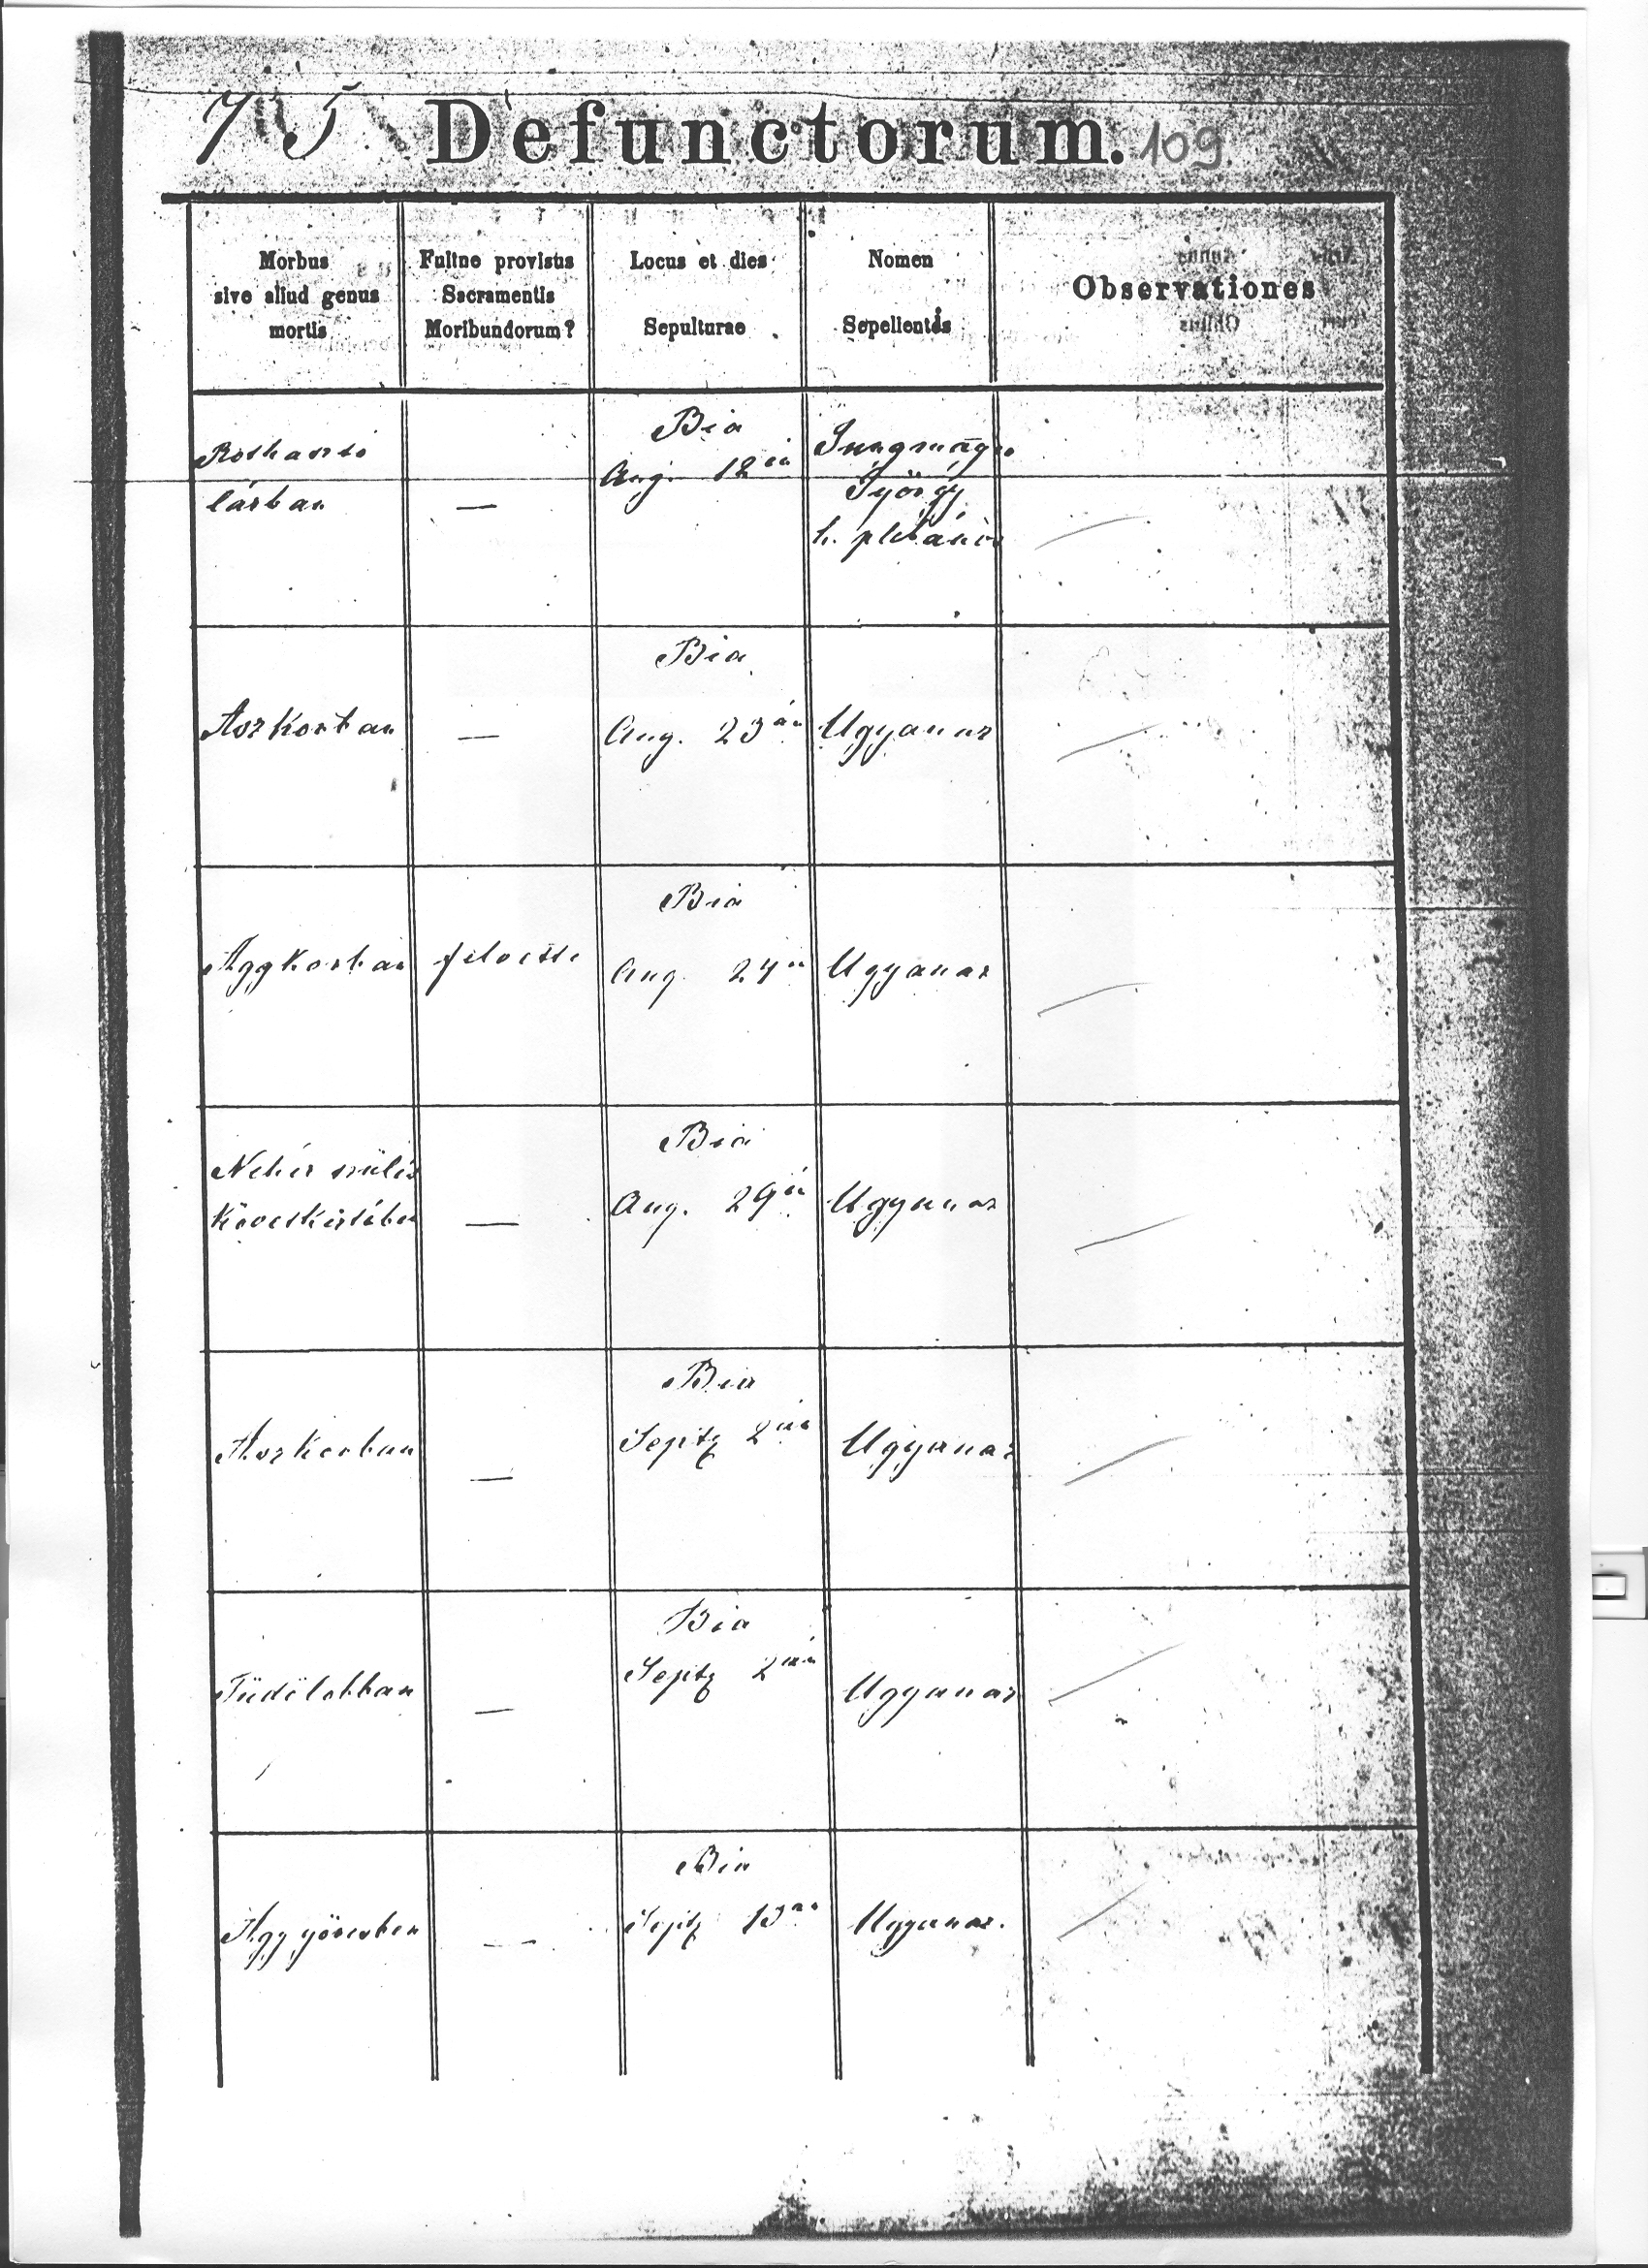 75 Defunctorum. 109.
Morbus
sive aliud genus
mortis
Fuitne provisus
Sacramentis
Moribundorum?
Locus et dies
Sepulturae
Nomen
Sepelientis
Observationes
lázban
—
Bia
Aug. 12én
György
h. plébános
Aszkorban
—
Bia
Aug. 23án
Ugyanaz
Aggkorban
felvette
Bia
Aug 24n
Ugyanaz
Nehéz szülés
következtében
—
Bia
Aug. 29én
Ugyanaz
Aszkorban
—
Bia
Septb 2án
Ugyanaz
Tüdőlobban
—
Bia
Septb 2án
Ugyanaz
Agg görcsben
—
Bia
Septb 13án
Ugyanaz.